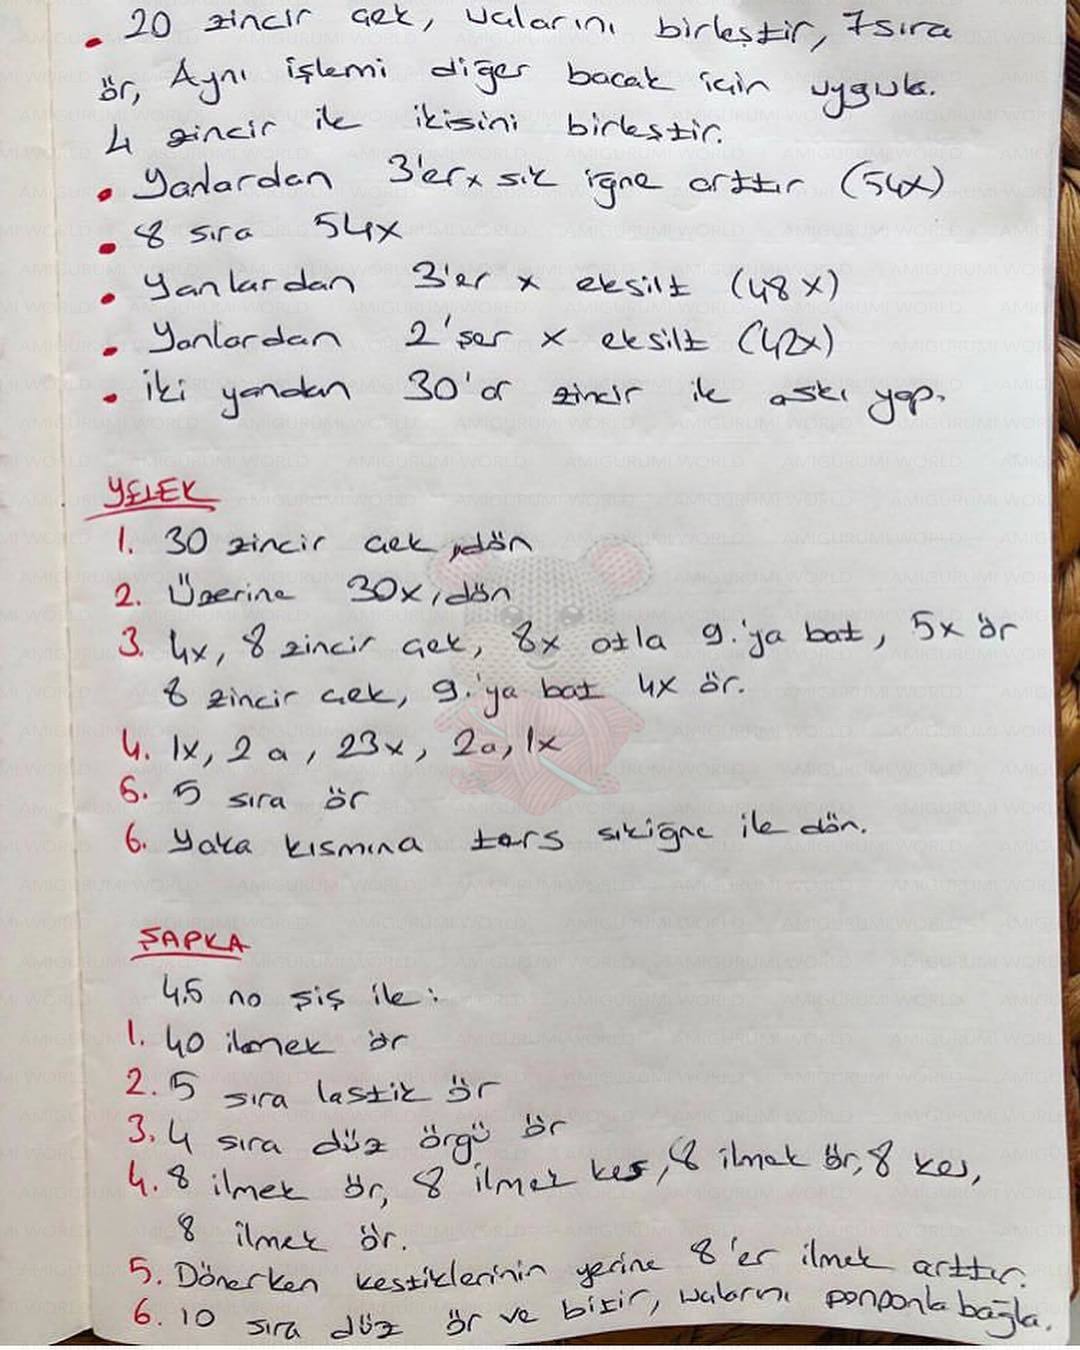 • 20 zincir çek, uçlarını birleştir, 7 sıra
ör, Aynı işlemi diğer bacak için uygula.
4 zincir ile ikisini birleştir.
• Yanlardan 3'er x sık iğne arttır (54x)
• 8 sıra 54x
• Yanlardan 3'er x eksilt (48x)
• Yanlardan 2'şer x eksilt (42x)
• iki yandan 30'ar zincir ile askı yap.
YELEK
1. 30 zincir çek, dön
2. Üzerine 30x, dön
3. 4x, 8 zincir çek, 8x atla 9.'ya bat, 5x ör
8 zincir çek, 9.'ya bat 4x ör.
4. 1x, 2a, 23x, 2a, 1x
5. 5 sıra ör
6. Yaka kısmına ters sıkiğne ile dön.
ŞAPKA
4,5 no şiş ile:
1. 40 ilmek ör
2. 5 sıra lastik ör
3. 4 sıra düz örgü ör
4. 8 ilmek ör, 8 ilmek kes, 8 ilmek ör, 8 kes,
8 ilmek ör.
5. Dönerken kestiklerinin yerine 8'er ilmek arttır.
6. 10 sıra düz ör ve bitir, uçlarını ponponla bağla.
AMIGURUMI WORLD